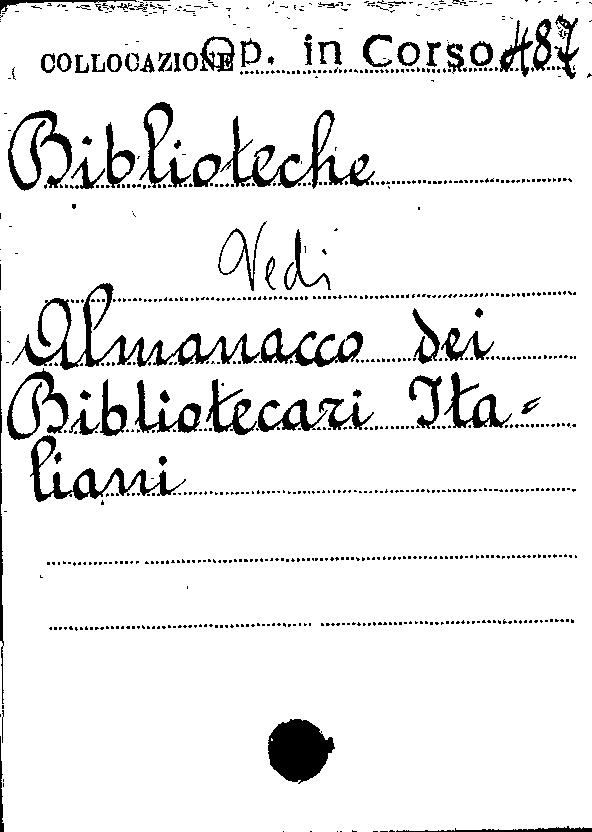 COLLOCAZIONE Op. in Corso 487
Biblioteche
Vedi
Almanacco dei
Bibliotecari Ita-
liani